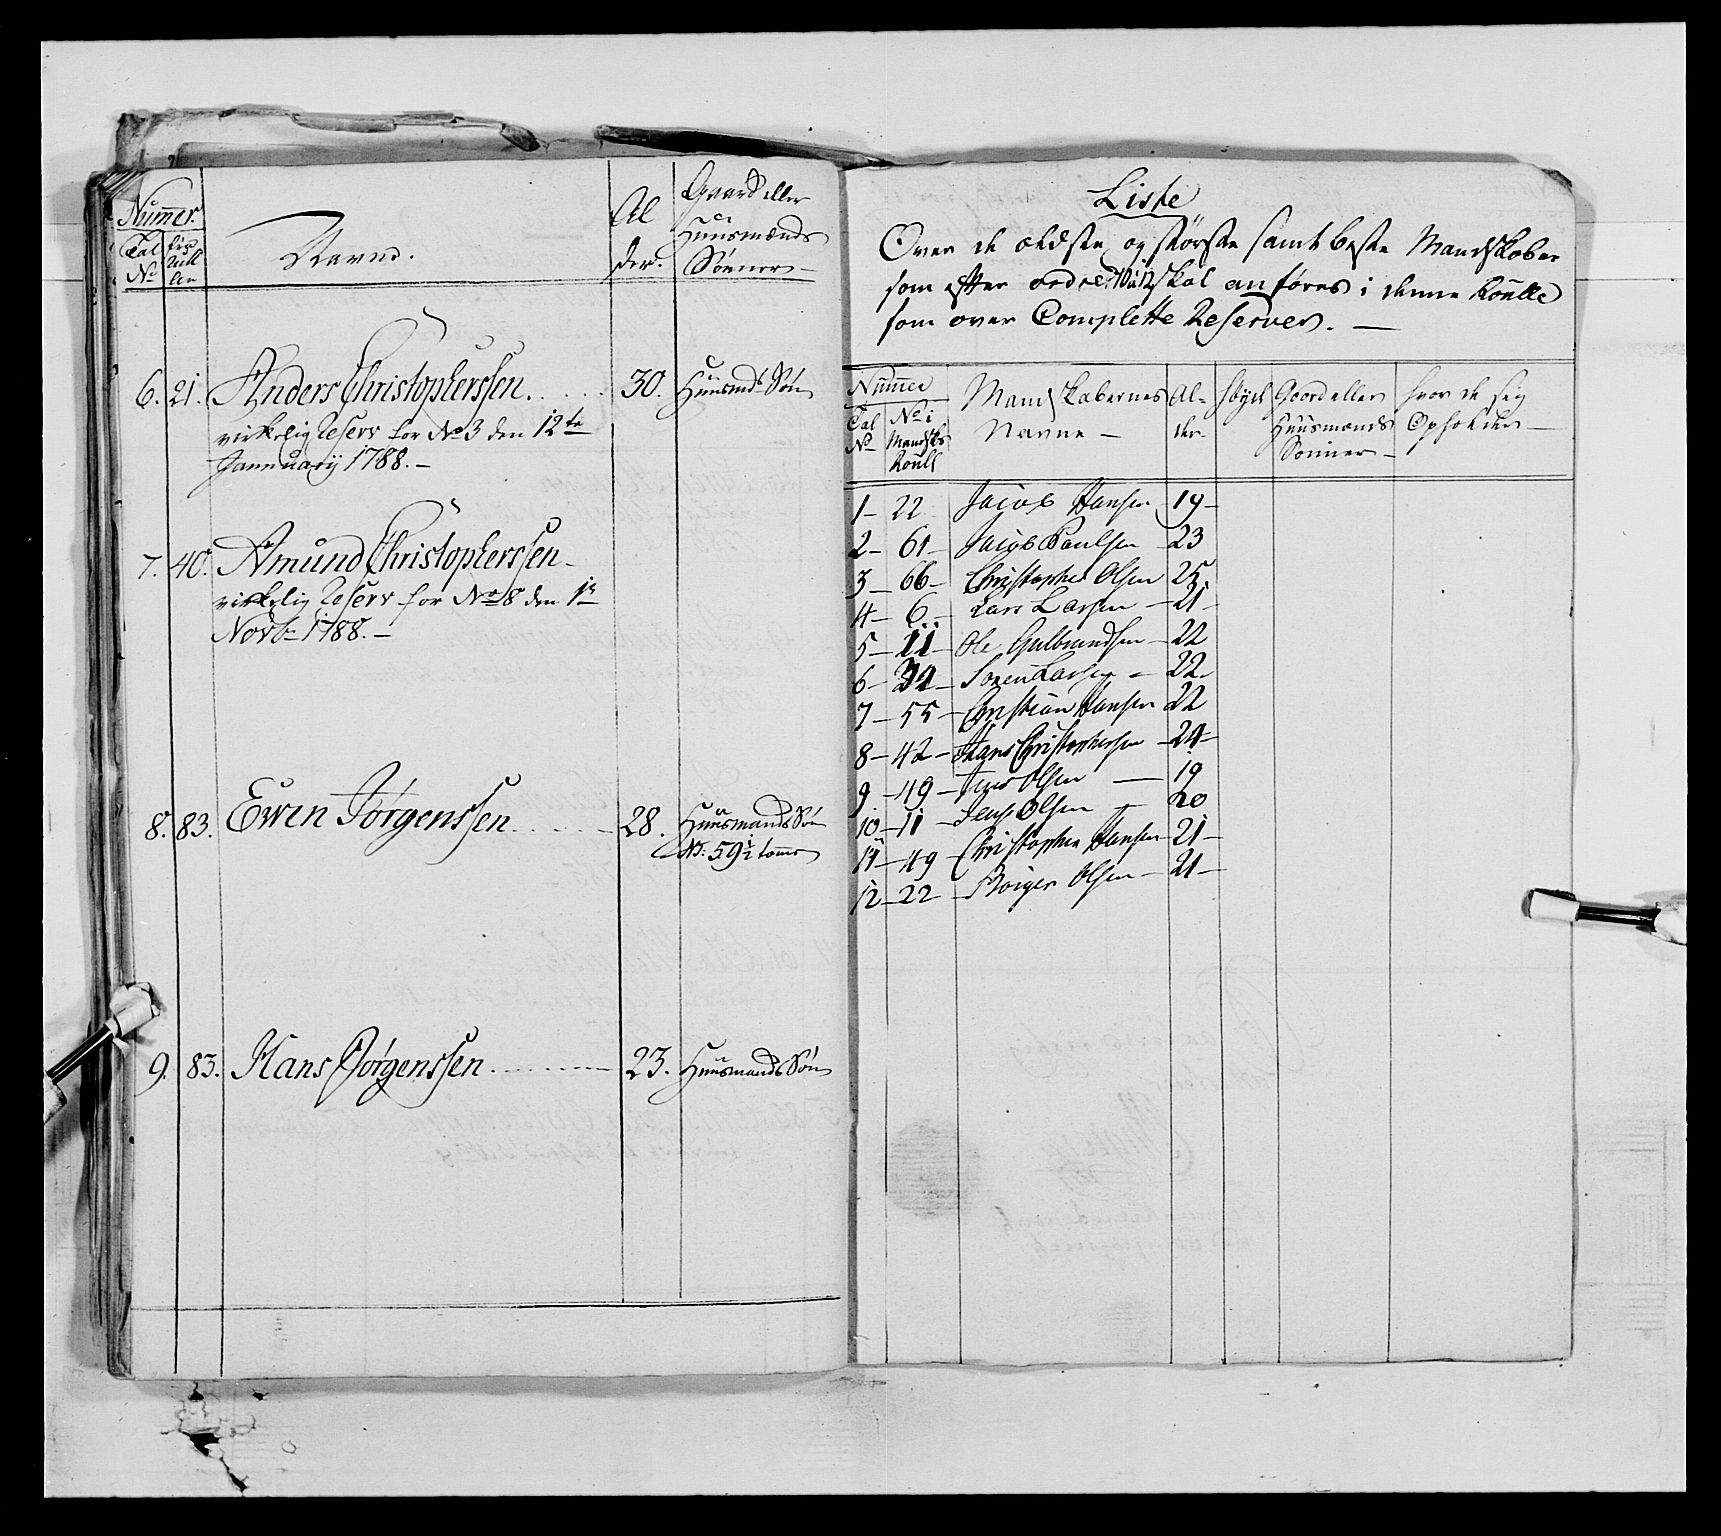 Numer.
Tal No
fra Rull len
Navne.
Al der.
Gaard eller Huusmænds Sønner
6. 21. Anders Christopherssen. 30. Huusmds Søn
virkelig Reserv for No 3 den 12te
Jannuarij 1788. —
7. 40. Amund Christopherssen
virkelig Reserv for No 8 den 1te
Novbr 1788. —
8. 83. Ewen Jørgenssen 28. Huusmands Søn
59 1/2 tomme
9. 83. Hans Jørgenssen 23. Huusmands Søn
Liste
Over de ældste og største samt beste Mandskaber
som efter ordre 10 à 12 skal anføres i denne Roulle
som over Complette Reserver. —
Nummer
Tal No
No i Mandsks Roull
Mandskabernes Navne —
Al- der-
Høyd
Gaard eller Huusmænds Sønner —
hvor de sig Opholder —
1 — 22 Jacob Hansen 19 —
2 — 61 — Jacob Paulsen — 23
3 — 66 — Christopher Olsen 25
4 — 6 — Lars Larsen — 21 —
5 — 11 — Ole Gulbrandsen — 22
6 — 32 — Soren Larsen — 22 —
7 — 55 — Christian Hansen 22
8 — 42 — Hans Christophersen — 24 —
9 — 49 — Jens Olsen — 19
10 — 11 — Jens Olsen — 20
11 — 49 — Christopher Hansen — 21 —
12 — 22 — Børger Olsen — 21 —